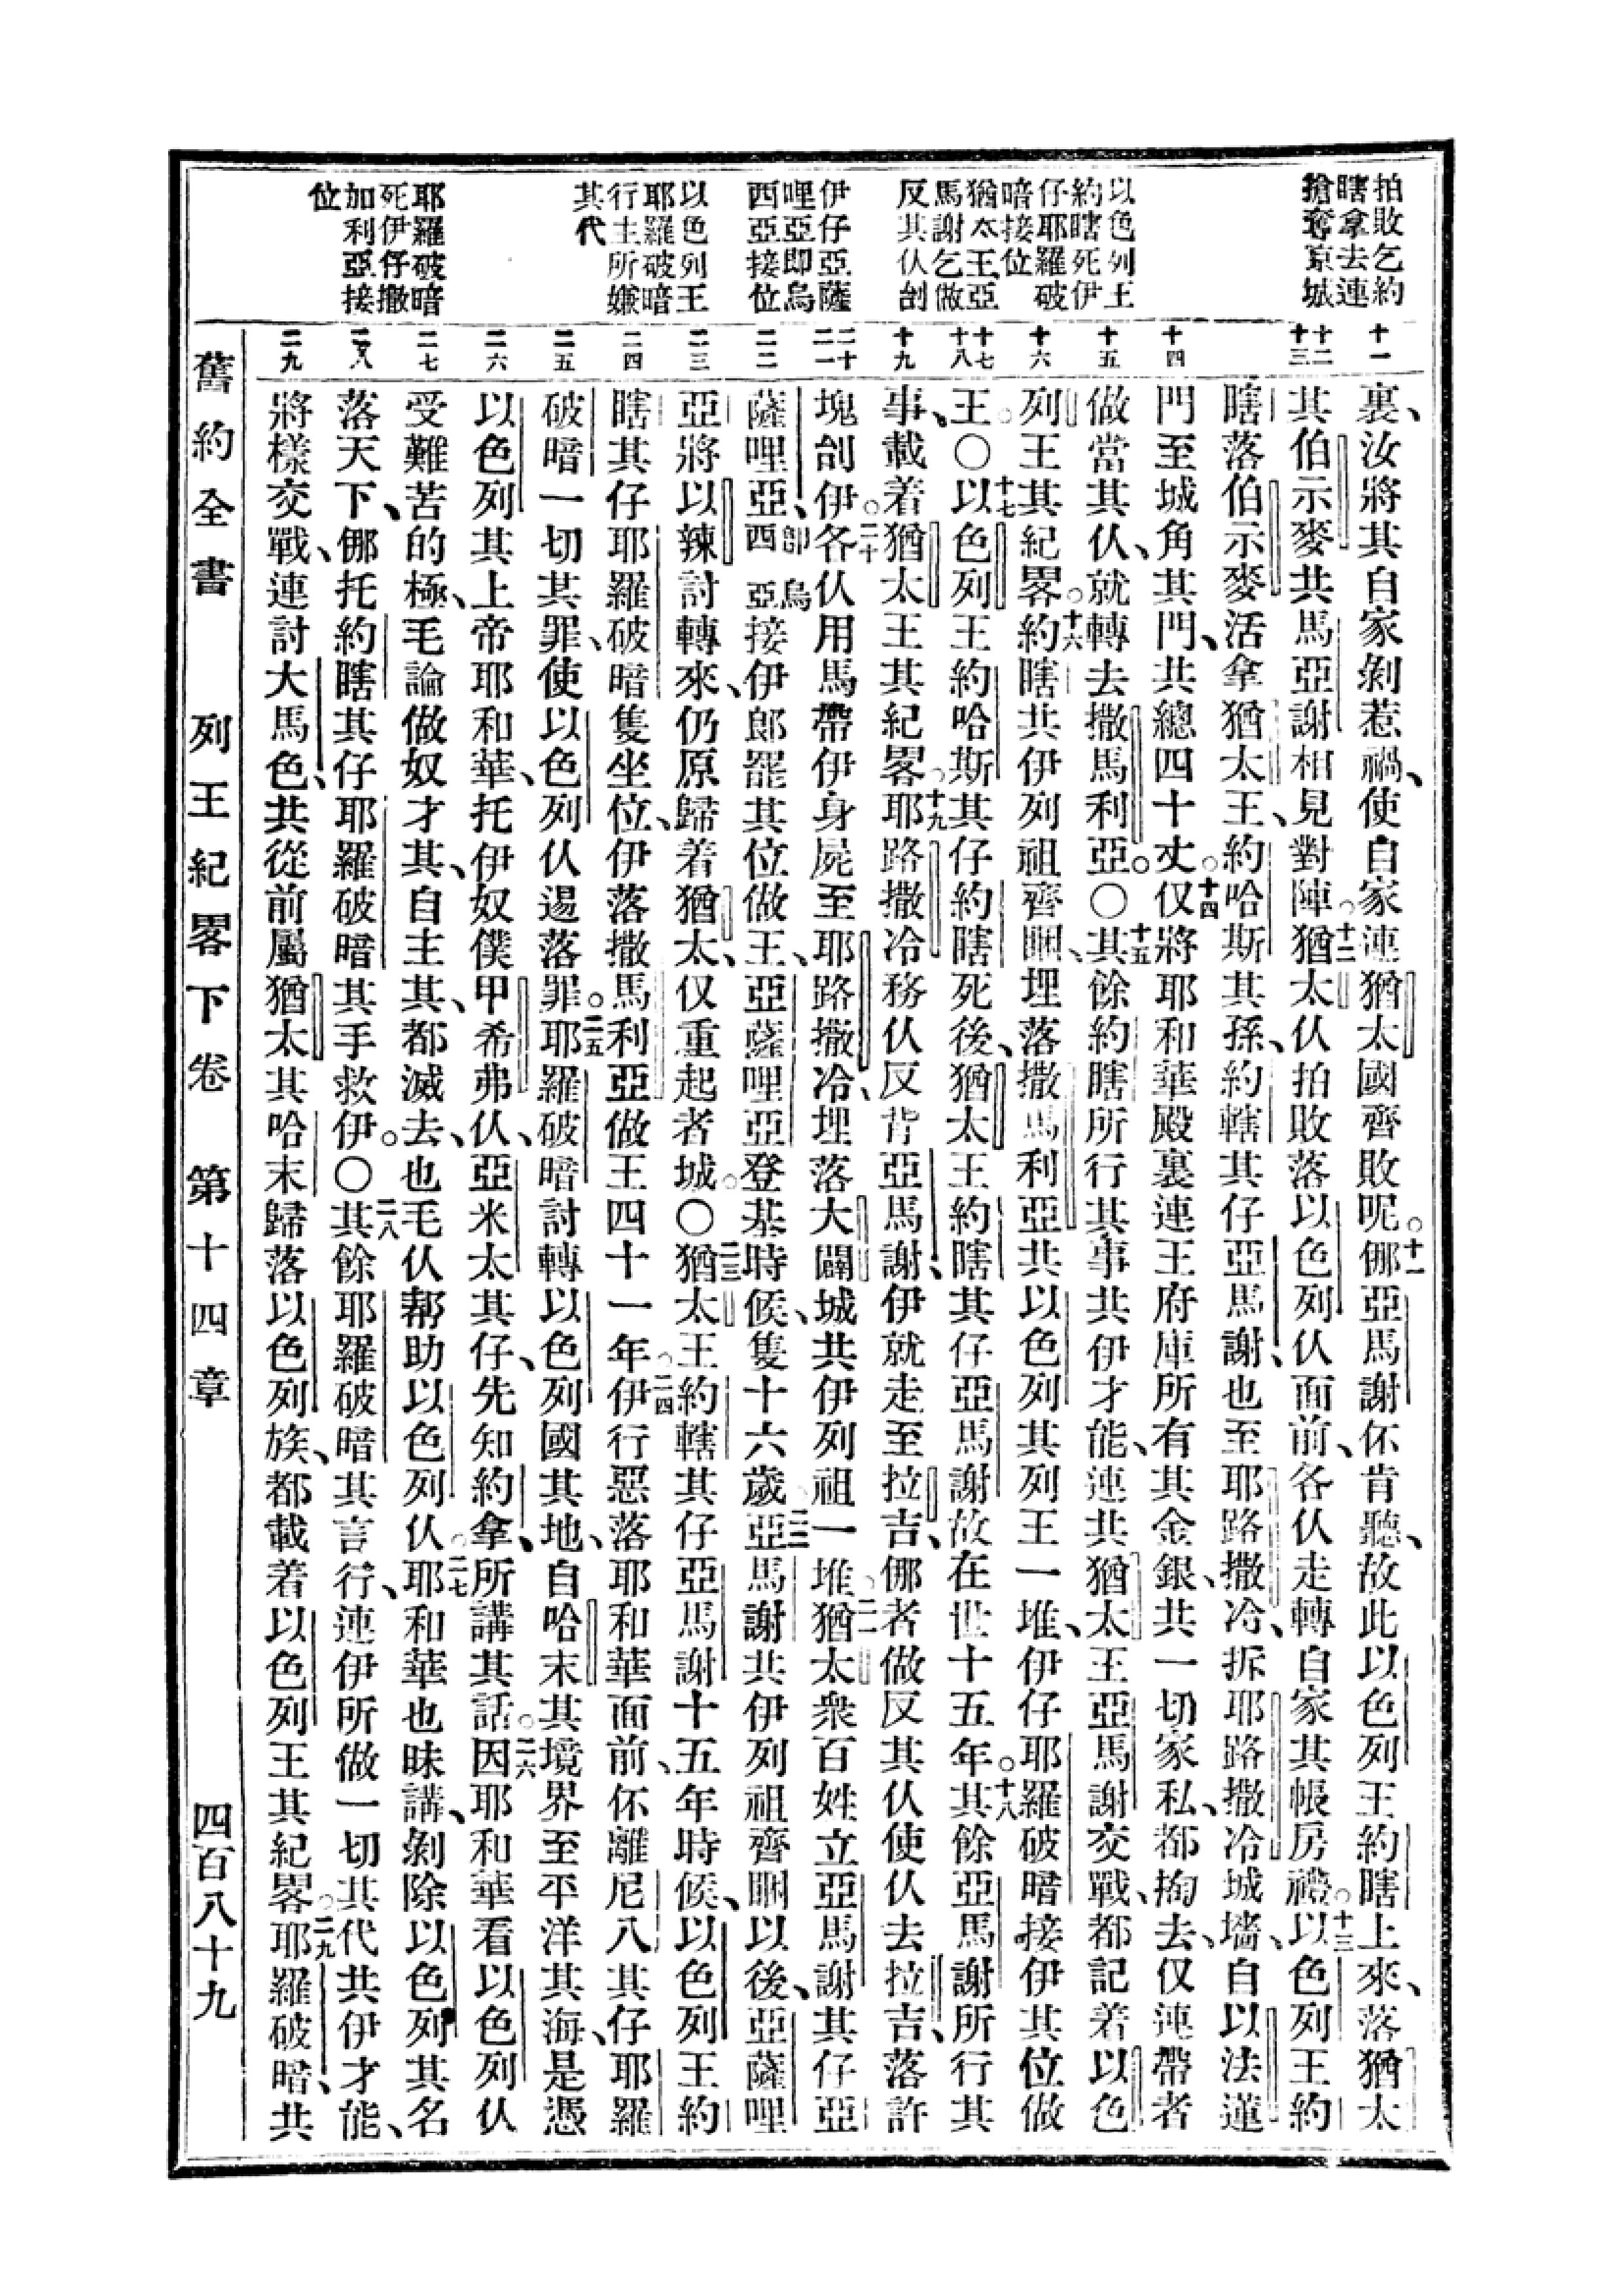 拍敗乞約
瞎拿去連
搶奪京城
以色列王
約瞎死伊
仔耶羅破
暗接位
猶太王亞
馬謝乞做
反其仈刣
伊仔亞薩
哩亞即烏
西亞接位
以色列王
耶羅破暗
行主所嫌
其代
耶羅破暗
死伊仔撒
加利亞接
位
十一
十二
十三
十四
十五
十六
十七
十八
十九
二十
二一
二二
二三
二四
二五
二六
二七
二八
二九
裏、汝將其自家剝惹禍、使自家連猶太國齊敗呢。十一㑚亞馬謝伓肯聽、故此以色列王約瞎上來、落猶太
其伯示麥、共馬亞謝相見對陣。十二猶太仈拍敗落以色列仈面前、各仈走轉自家其帳房𥚃。十三以色列王約
瞎落伯示麥活拿猶太王、約哈斯其孫、約轄其仔亞馬謝、也至耶路撒冷、拆耶路撒冷城墻、自以法蓮
門至城角其門、共總四十丈。十四仅將耶和華殿裏連王府庫所有其金銀、共一切家私、都掏去、仅連帶者
做當其仈、就轉去撒馬利亞。〇十五其餘約瞎所行其事共伊才能、連共猶太王亞馬謝交戰、都記着以色
列王其紀畧。十六約瞎共伊列祖齊睏、埋落撒馬利亞共以色列其列王一堆、伊仔耶羅破暗接伊其位做
王。〇十七以色列王約哈斯其仔約瞎死後、猶太王約瞎其仔亞馬謝故在世十五年。十八其餘亞馬謝所行其
事、載着猶太王其紀畧。十九耶路撒冷務仈反背亞馬謝、伊就走至拉吉、㑚者做反其仈使仈去拉吉、落許
塊刣伊。二十各仈用馬帶伊身屍至耶路撒冷、埋落大闢城共伊列祖一堆。二一猶太衆百姓立亞馬謝其仔亞
薩哩亞、即烏西亞接伊郎罷其位做王、亞薩哩亞登基時候、隻十六歲。二二亞馬謝共伊列祖齊睏以後、亞薩哩
亞將以辣討轉來、仍原歸着猶太、仅重起者城。〇二三猶太王約轄其仔亞馬謝十五年時候、以色列王約
瞎其仔耶羅破暗隻坐位、伊落撒馬利亞做王四十一年。二四伊行惡落耶和華面前、伓離尼八其仔耶羅
破暗一切其罪、使以色列仈逿落罪。二五耶羅破暗討轉以色列國其地、自哈末其境界至平洋其海、是憑
以色列其上帝耶和華、托伊奴僕甲希弗仈、亞米太其仔、先知約拿、所講其話。二六因耶和華看以色列仈
受難苦的極、毛論做奴才其、自主其、都滅去、也毛仈幇助以色列仈。二七耶和華也昧講、剝除以色列其名
落天下、㑚托約瞎其仔耶羅破暗其手救伊。〇二八其餘耶羅破暗其言行、連伊所做一切其代共伊才能、
將樣交戰、連討大馬色、共從前屬猶太其哈末歸落以色列族、都載着以色列王其紀畧。二九耶羅破暗、共
舊約全書　列王紀畧下卷　第十四章　四百八十九